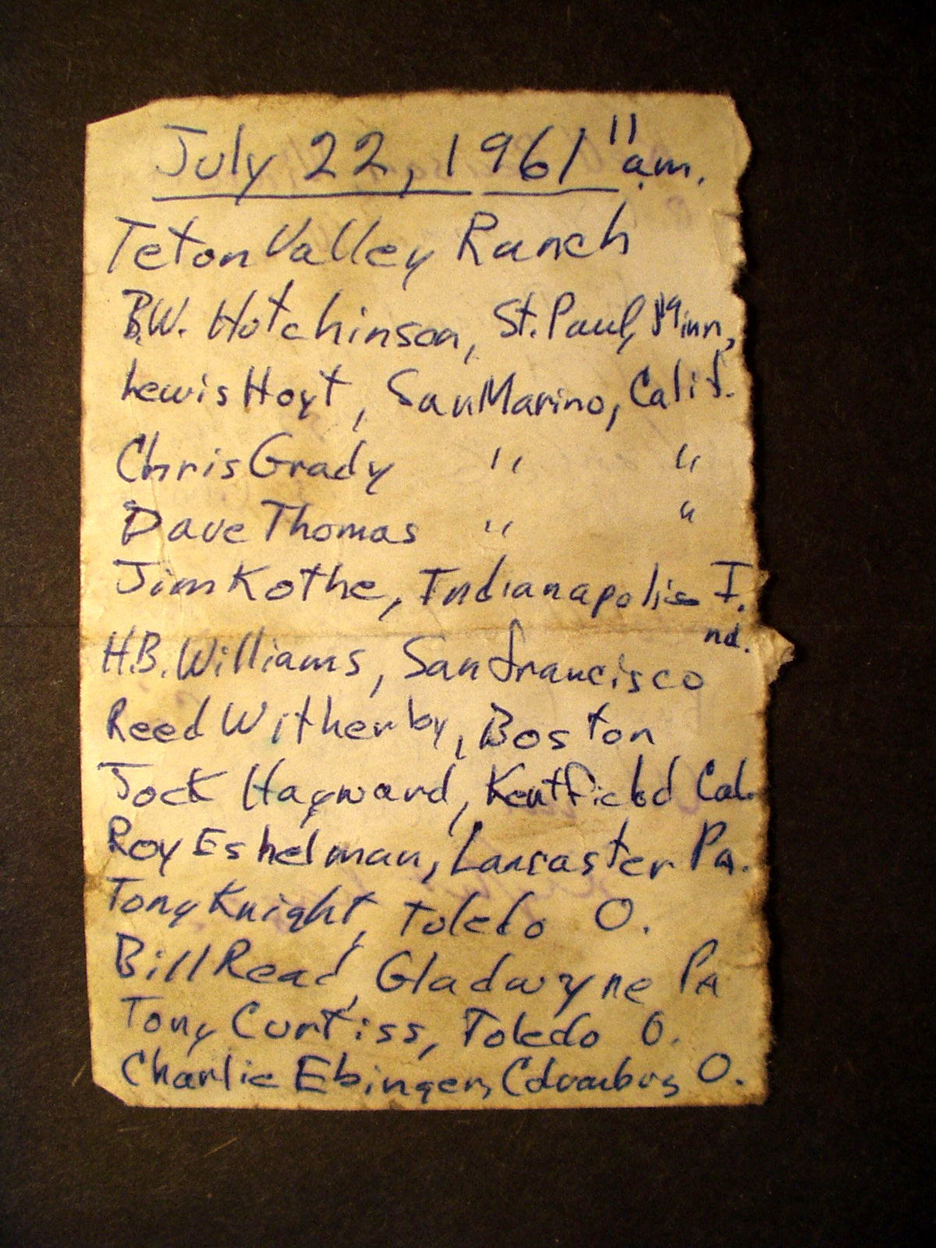 July 22, 1961 11 a.m.
Teton Valley Ranch
B.W. Hotchinson, St. Paul, Minn,
Lewis Hoyt, San Marino, Calif.
Chris Grady " "
Dave Thomas " "
Jim Kothe, Indianapolis I.
nd.
H.B. Williams, San francisco
Reed Witherby, Boston
Jock Hayward, Kentfield Cal.
Roy Eshelman, Lancaster Pa.
Tony Knight, Toledo O.
Bill Read, Gladwyne Pa
Tony Curtiss, Toledo O.
Charlie Ebinger, Columbus, O.